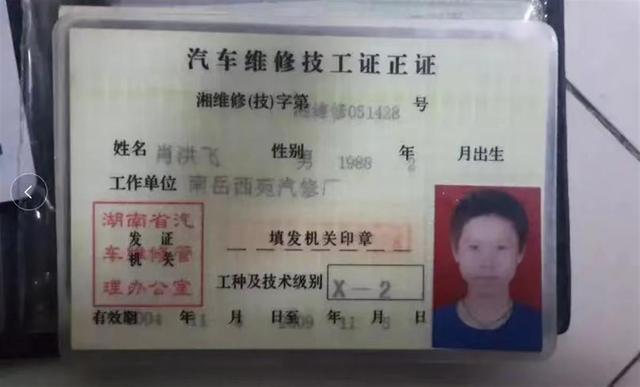 汽车维修技工证正证
湘维修(技)字第湘维修051428号
姓名 肖洪飞 性别 男 1988年2月出生
工作单位 南岳西苑汽修厂
湖南省汽车维修管理办公室
发证机关
填发机关印章
工种及技术级别 X-2
有效期2004年11月 日至2009年11月5日